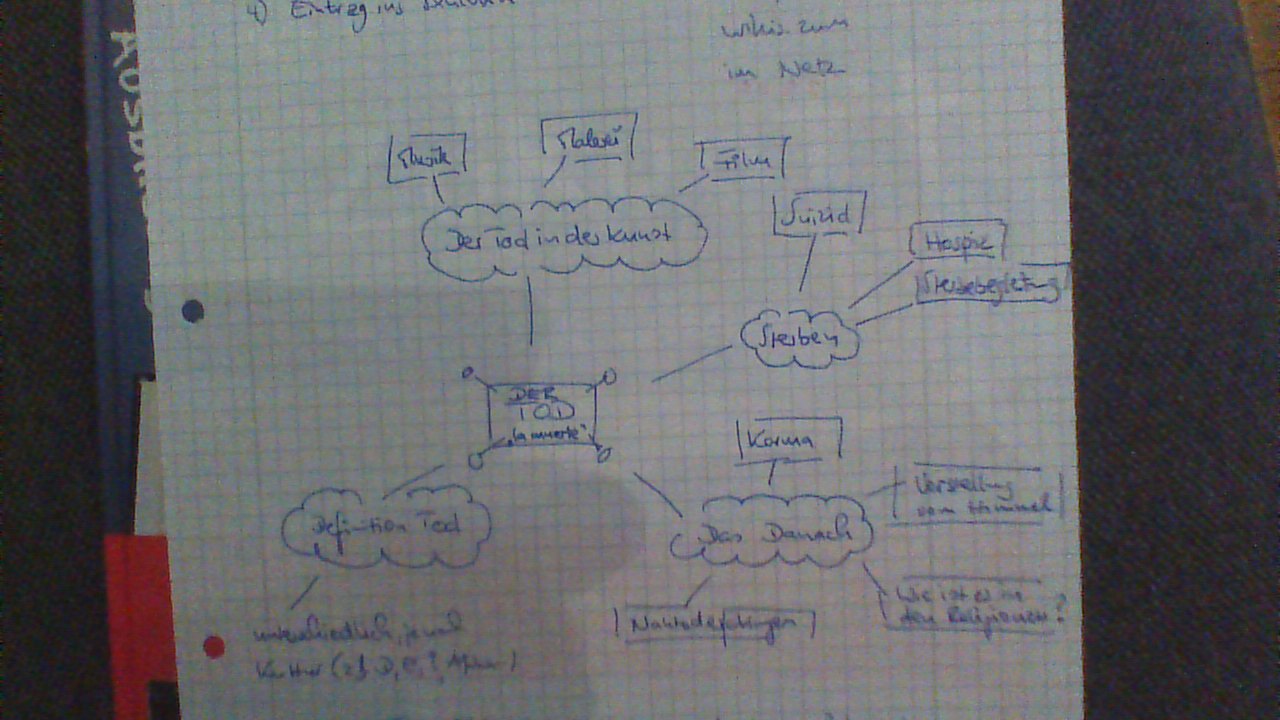 4) Eintrag ins
wikis zum
im Netz
Musik
Malerei
Film
Der Tod in der Kunst
Suizid
Hospiz
Sterbebegleitung
Sterben
DER
TOD
"la muerte"
Karma
Definition Tod
Das Danach
Vorstellung
vom Himmel
Wie ist es in
den Religionen?
Nahtoderfahrungen
unterschiedlich, je nach
Kultur (z.B. D,